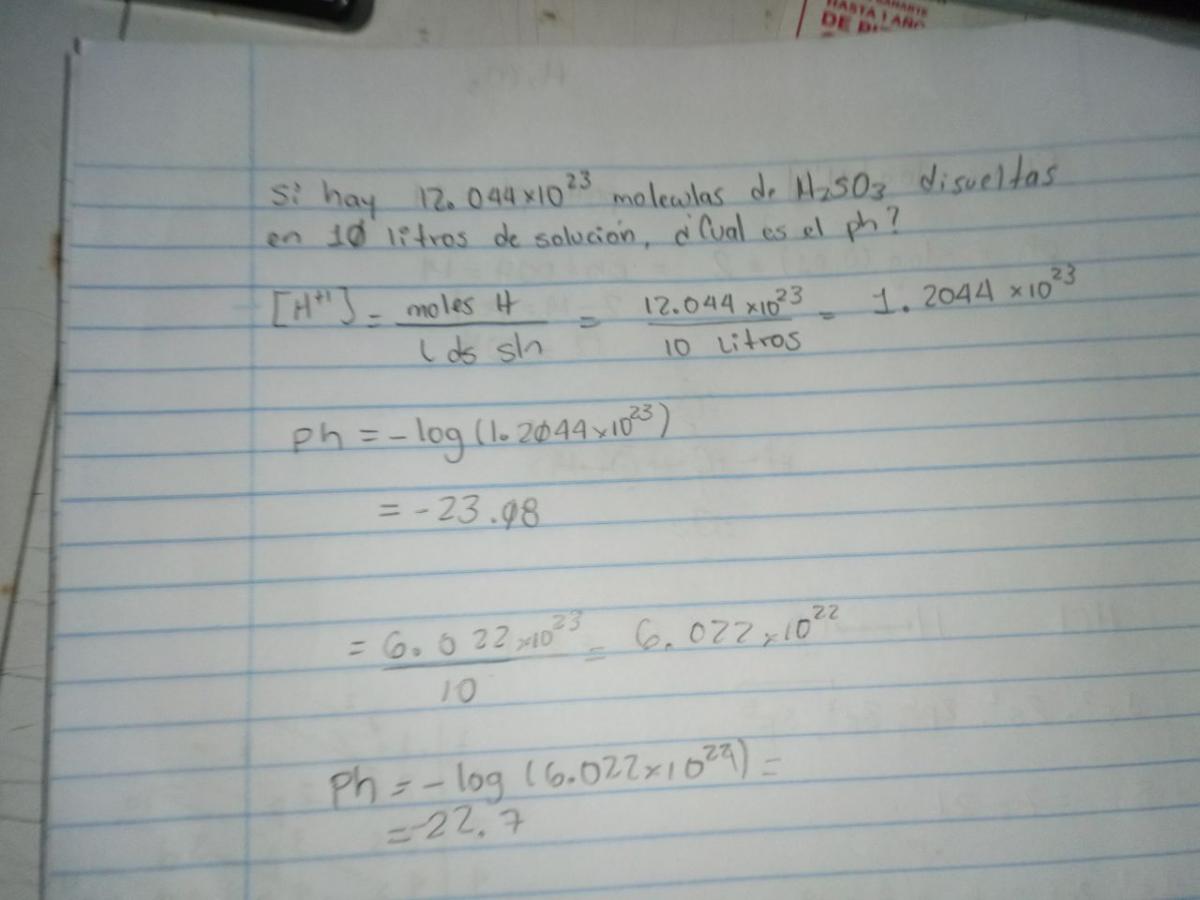 HASTA 1 AÑO
Si hay 12.044×10²³ moleculas de H₂SO₃ disueltas
en 10 litros de solución, ¿Cual es el ph?
[H⁺¹] = moles H / L ds sln = 12.044 ×10²³ / 10 Litros = 1.2044 ×10²³
ph = -log (1.2044×10²³)
= -23.08
= 6.022×10²³ / 10 = 6.022×10²²
Ph = -log (6.022×10²²) =
= -22.7